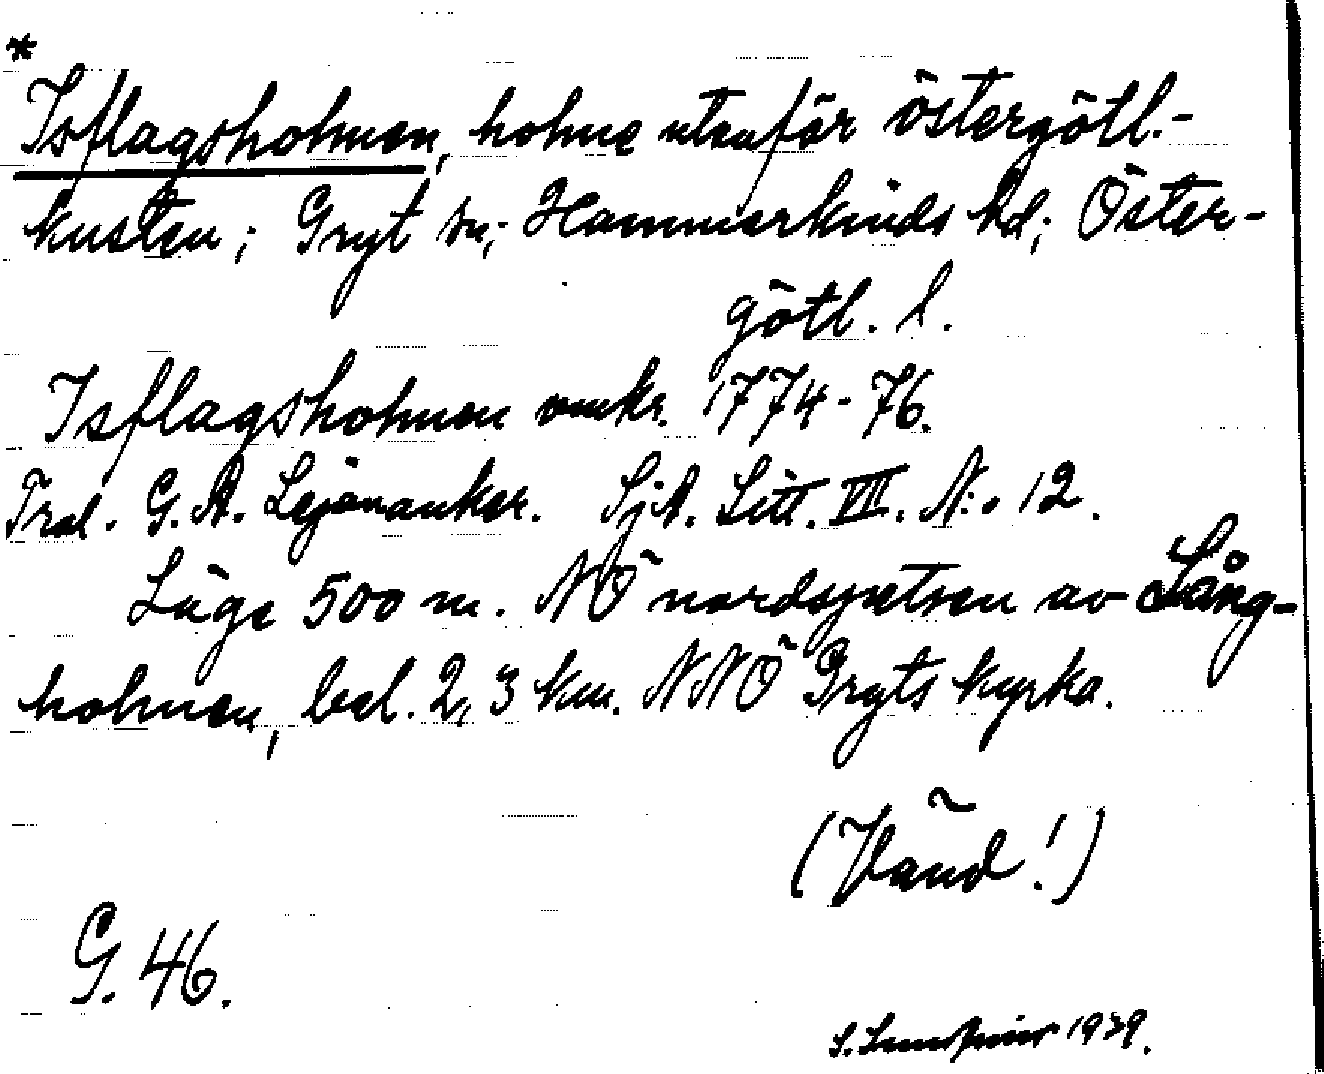 *
Isflagsholmen, holme utanför östergötl.-
kusten; Gryt sn; Hammarkinds hd; Öster-
götl. l.
Isflagsholmen omkr. 1774-76.
Tral. G. A. Lejonanker. SjA. Litt. VII. N:o 12.
Läge 500 m. NÖ nordspetsen av Lång-
holmen, bel. 2,3 km. NNÖ Gryts kyrka.
(Vänd!)
G. 46.
S. 1939.